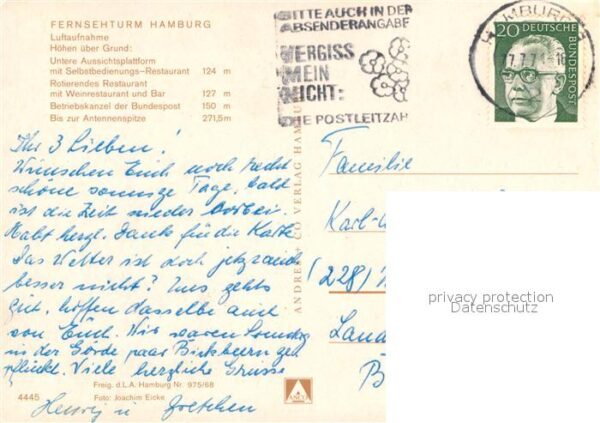 FERNSEHTURM HAMBURG
Luftaufnahme
Höhen über Grund:
Untere Aussichtsplattform
mit Selbstbedienungs-Restaurant 124 m
Rotierendes Restaurant
mit Weinrestaurant und Bar 127 m
Betriebskanzel der Bundespost 150 m
Bis zur Antennenspitze 271,5 m
Ihr 3 Lieben!
Wünschen Euch noch recht
schöne sonnige Tage, bald
ist die Zeit wieder vorbei.
Habt herzl. Dank für die Karte
Das Wetter ist doch jetzt
besser nicht? Uns gehts
gut, hoffen dasselbe auch
von Euch. Wir waren Sonntag
in der Görde paar Bickbeern ge
pflückt. Viele herzliche Grüsse
Freig. d.L.A. Hamburg Nr. 975/68
4445 Foto: Joachim Eicke
Gretchen
ANDRES + CO VERLAG HAMBU
ANCO
BITTE AUCH IN DER
ABSENDERANGABE
VERGISS
MEIN
NICHT:
DIE POSTLEITZAH
HAMBURG
20 DEUTSCHE
BUNDESPOST
Familie
Karl-
(228)
Land
privacy protection
Datenschutz